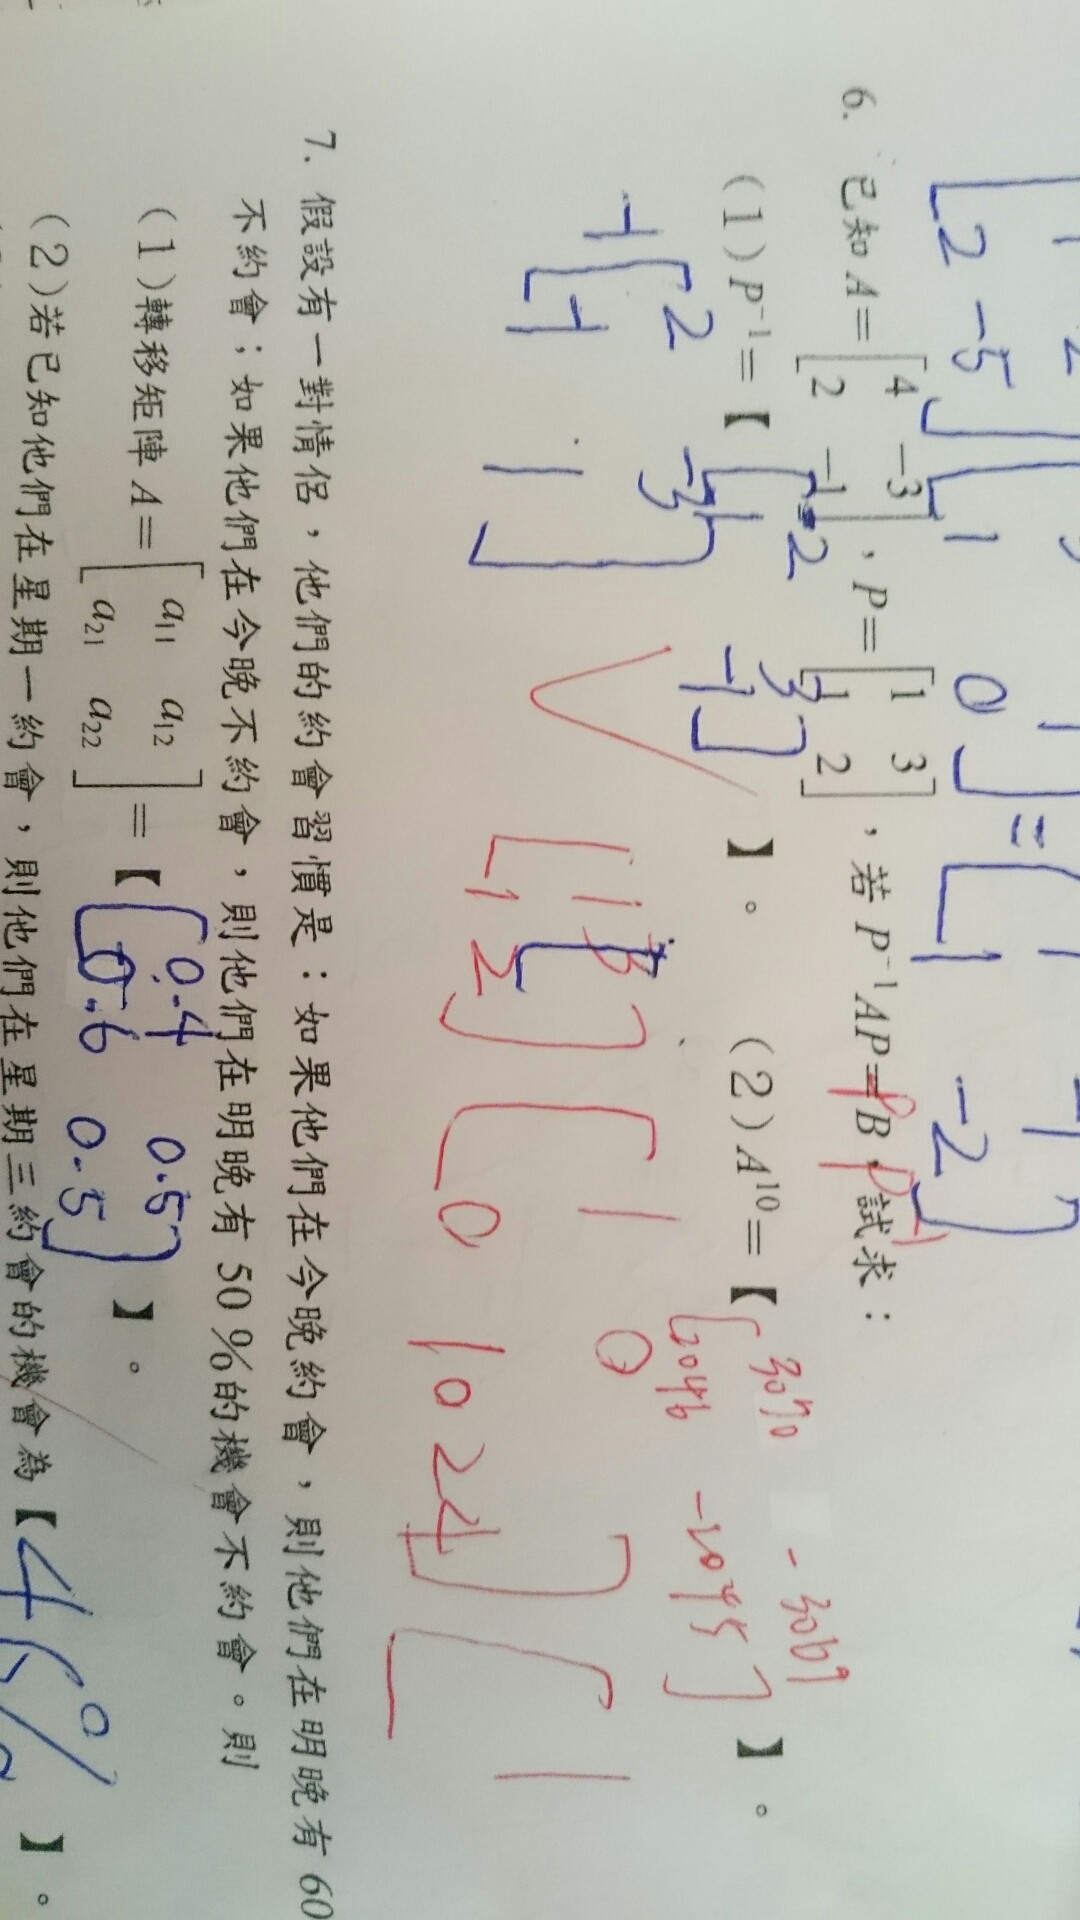 [2 -5] [1 0] = [1 -2]
6. 已知 A= [4 -3
2 -1], P= [1 3
1 2], 若 P⁻¹AP=B, 試求：
(1) P⁻¹=【 [-2 3
1 -1] 】。 (2) A¹⁰=【 [3070 -3069
2046 -2045] 】。
-1 [2 -3
-1 1]
[1 3
1 2] [1 0
0 1024] [
7. 假設有一對情侶，他們的約會習慣是：如果他們在今晚約會，則他們在明晚有 60
不約會；如果他們在今晚不約會，則他們在明晚有 50 %的機會不約會。則
(1)轉移矩陣 A= [a₁₁ a₁₂
a₂₁ a₂₂] =【 [0.4 0.5
0.6 0.5] 】。
(2)若已知他們在星期一約會，則他們在星期三約會的機會為【 】。